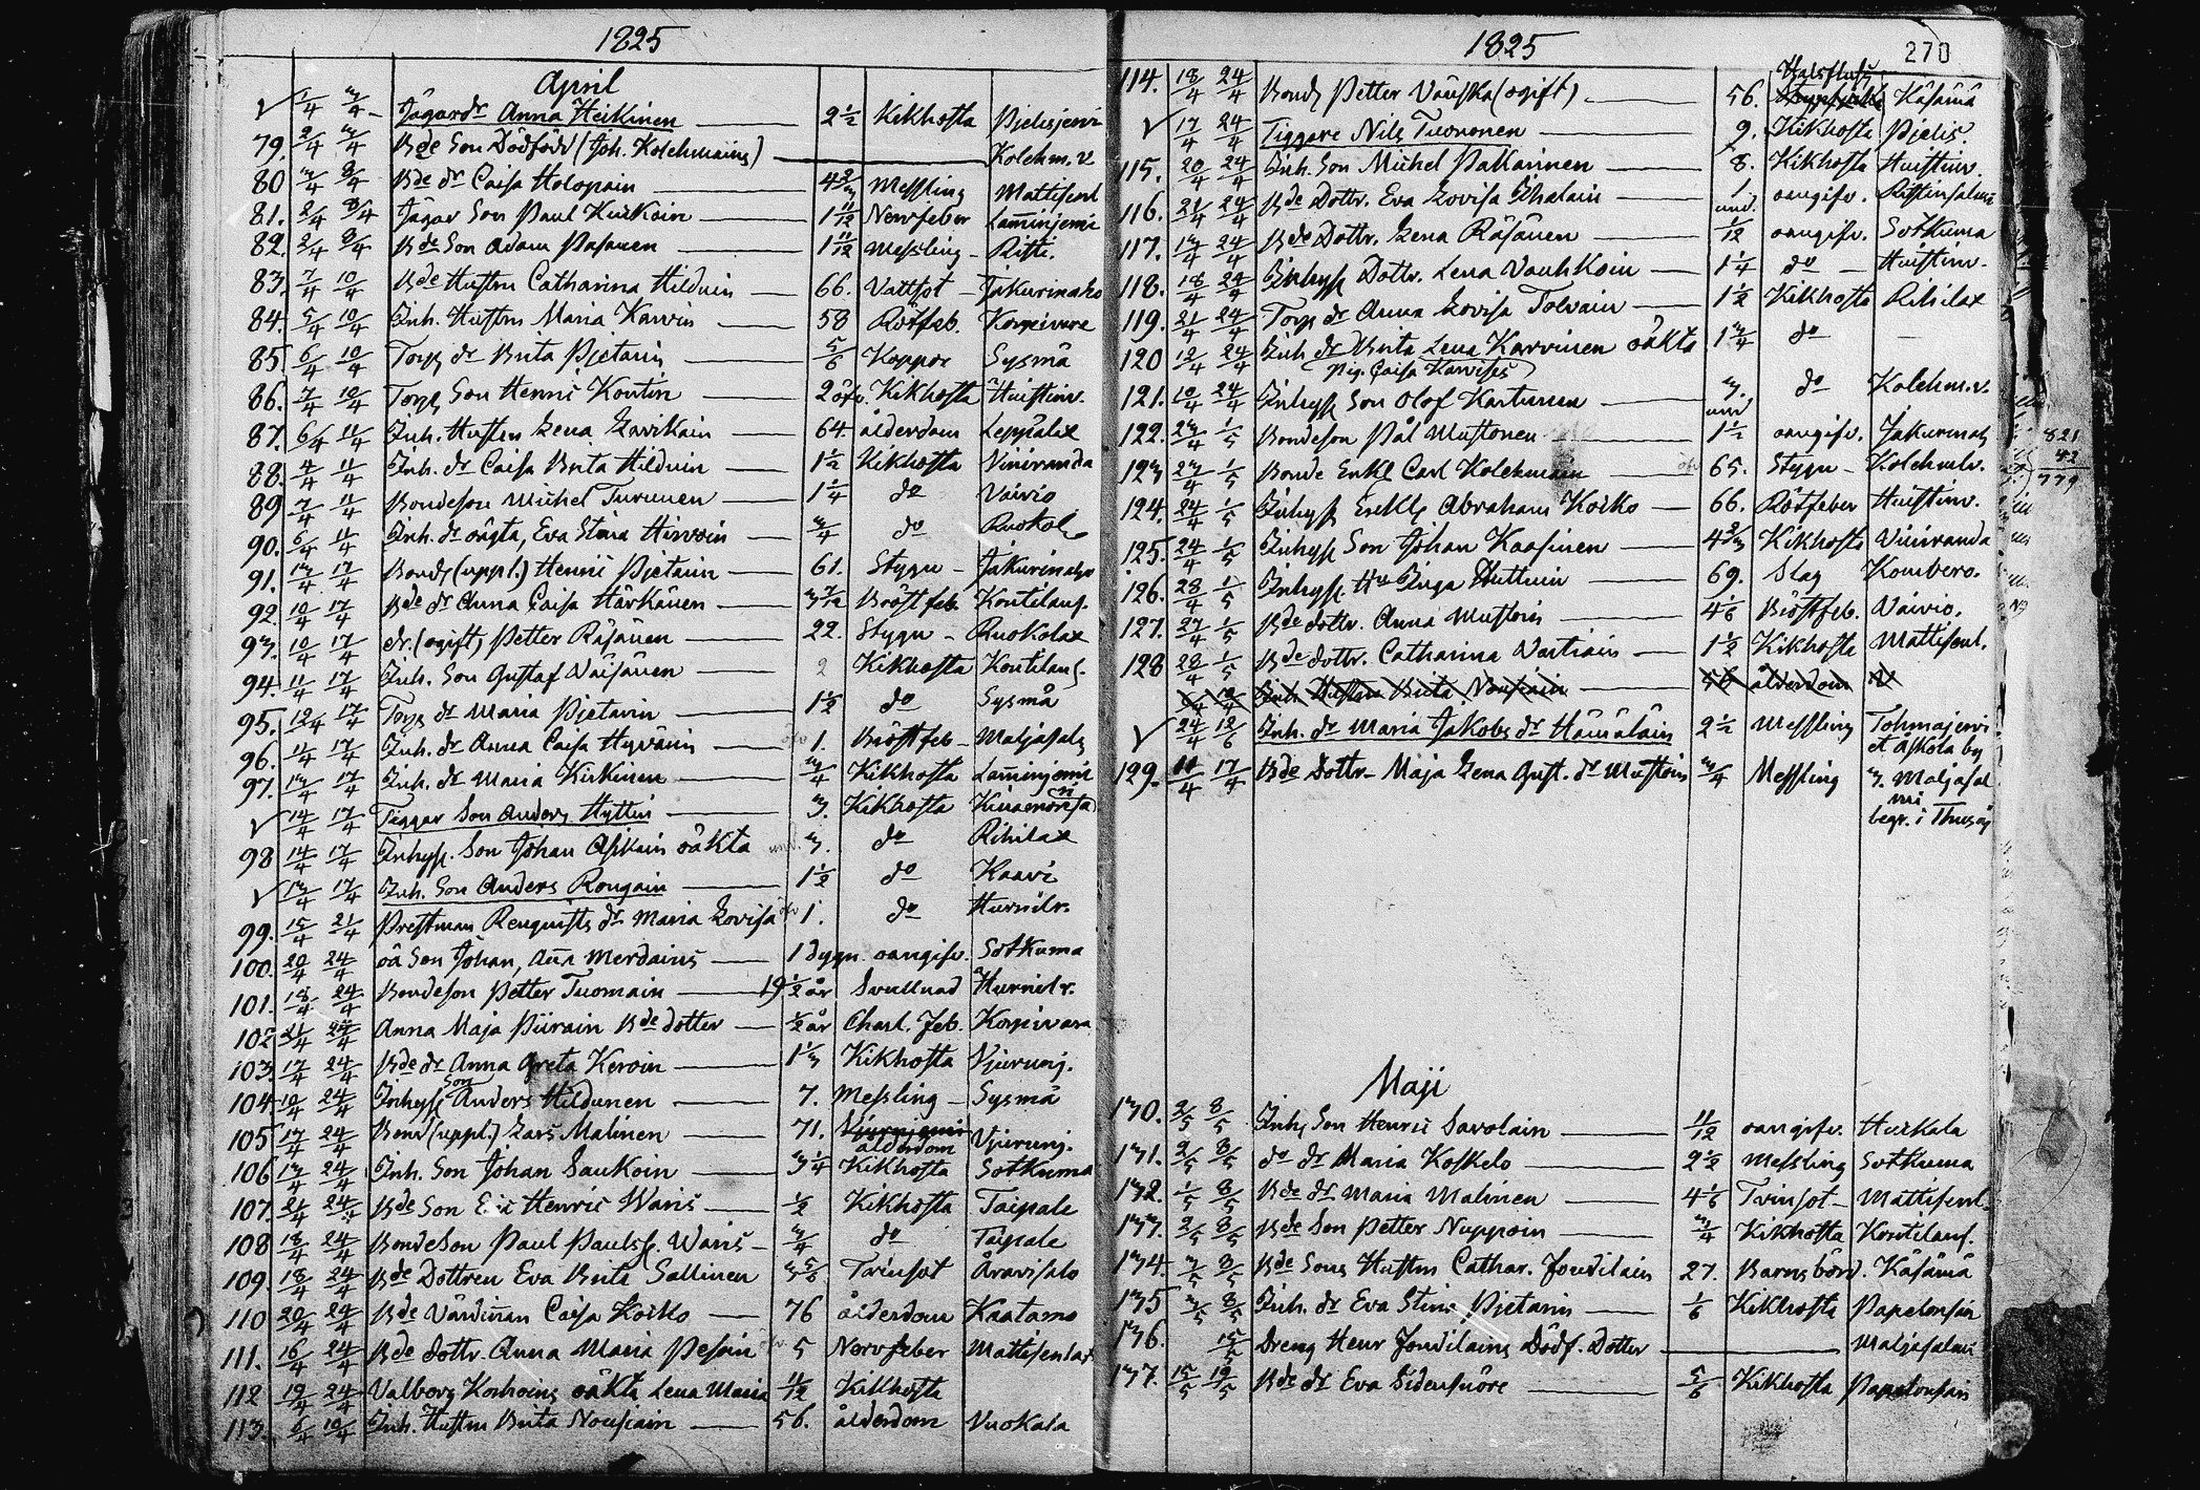 1825
April
√ 1/4 3/4 Jägar dr Anna Heikinen — 2½ Kikhosta Pielisjervi
79. 2/4 3/4 Bde Son Dödfödd (Joh. Kolehmains) — Kolehm. v
80 3/4 8/4 Bde dr Caisa Holopain — 4 2/3 Messling Mattisenl
81. 2/4 8/4 Jägar Son Paul Kurkoin — 1 11/12 Nervfeber Laminjerni
82. 2/4 8/4 Bde Son Adam Pasanen — 1 11/12 Messling — Risti.
83. 7/4 10/4 Bde Hustru Catharina Hilduin — 66. Vattsot — Jakurinaho
84. 5/4 10/4 Inh. Hustru Maria Karvin — 58 Rötfeb. Korpivare
85. 6/4 10/4 Torp dr Brita Pjetarin — 5/6 Koppor Sysmä
86. 7/4 10/4 Torp Son Henric Kontin — 2 öfv. Kikhosta Huistinv.
87. 6/4 11/4 Inh. Hustru Lena Larikain — 64. ålderdom Leppälax
88. 4/4 11/4 Inh. dr Caisa Brita Hilduin — 1½ Kikhosta Viniranda
89 7/4 11/4 Bondeson Michel Turunen — 1¼ do Vaivio
90. 6/4 11/4 Inh. dr oägta, Eva Stina Hirvoin — 3/4 do Ruokol
91. 13/4 17/4 Bond (uppl.) Henric Pjetain — 61. Stygn — Jakurinaho
92. 10/4 17/4 Bde dr Anna Caisa Härkänen — 3 7/12 Bröstfeb. Kontilax.
93. 10/4 17/4 dr. (ogift) Petter Räsänen — 22. Stygn — Ruokolax
94. 11/4 17/4 Inh. Son Gustaf Väisänen — 2 Kikhosta Kontilax.
95. 12/4 17/4 Torp dr Maria Pjetarin — 1½ do Sysmä
96. 11/4 17/4 Inh. dr Anna Caisa Hyvärin — öfv 1. Bröstfeb — Maljasalm
97. 13/4 17/4 Inh. dr Maria Kirkinen — 3/4 Kikhosta Laminjerni
√ 14/4 17/4 Tiggar Son Anders Hyttin — 3. Kikhosta
98 14/4 17/4 Inhys. Son Johan Asikain oäkta und. 3. do Rihilax
√ 13/4 17/4 Inh. Son Anders Rongain — 1½ do Kaavi
99. 15/4 21/4 Prestman Renquists dr Maria Lovisa öfv 1. do Hurnilr.
100. 20/4 24/4 oä Son Johan, Aña Merdains — 1 dygn. oangifv. Sotkuma
101. 18/4 24/4 Bondeson Petter Tuomain — 19 ½ år Svullnad Hurnilr.
102 21/4 24/4 Anna Maja Piirain Bde dotter — ½ år Charl. Feb. Korpivara
103. 17/4 24/4 Bde dr Anna Greta Keroin — 1 1/3 Kikhosta Vjurunj.
104. 10/4 24/4 Inhys Son Anders Hildunen — 7. Messling — Sysmä
105 17/4 24/4 Bond (uppl.) Lars Malinen — 71. ålderdom Vjurunj.
106 13/4 24/4 Inh. Son Johan Saukoin — 3¼ Kikhosta Sotkuma
107. 21/4 24/4 Bde Son Eric Henric Waris — ½ Kikhosta Taipale
108 18/4 24/4 Bondeson Paul Paulss. Waris — 3/4 do Taipale
109. 18/4 24/4 Bde Dottren Eva Brita Sallinen 3 5/6 Tvinsot Aravisalo
110 20/4 24/4 Bde Värdiñan Caisa Koiko — 76 ålderdom Kaatamo
111. 16/4 24/4 Bde dottr. Anna Maria Pesoin öfv. 5 Nervfeber Mattisenlax
112 19/4 24/4 Valborg Korhoins oäkta Lena Maria 11/12 Kikhosta
113. 6/4 10/4 Inh. Hustru Brita Nousiain — 56. ålderdom Vuokala
1825
270
114. 18/4 24/4 Bond Petter Väiska (ogift) — 56. Halsfluss Käsämä
√ 17/4 24/4 Tiggare Nils Tuononen — 9. Kikhosta Pielis.
115. 20/4 24/4 Inh. Son Michel Pakarinen — 8. Kikhosta Huistinv.
116. 21/4 24/4 Bde Dottr. Eva Lovisa Ihalain — 1. oangifv. Ristinsalmi
117. 13/4 24/4 Bde Dottr. Lena Räsänen — und. 1/12 oangifv. Sotkuma
118. 18/4 24/4 Inhys Dottr. Lena Vauhkoin — 1¼ do — Huistinv.
119. 21/4 24/4 Torp dr Anna Lovisa Tolvain — 1½ Kikhosta Rihilax
120 12/4 24/4 Inh dr Brita Lena Karvinen oäkta 1 3/4 do —
(Pig. Caisa Karvises)
121. 10/4 24/4 Inhys Son Olof Kartunen — 3. do Kolehm. v.
122. 23/4 1/5 Bondeson Pål Mustonen und 1½ oangifv. Jakurinah
123 23/4 1/5 Bonde Enkl Carl Kolehmain — öfv 65. Stygn — Kolehmlv.
124. 24/4 1/5 Inhys Enkl Abraham Koiko — 66. Rötfeber Huistinv.
125. 24/4 1/5 Inhys Son Johan Kaasinen — 4 2/3 Kikhosta Viniranda
126. 28/4 1/5 Inhys. Hu Inga Huttuin — 69. Slag Kombero.
127. 27/4 1/5 Bde dottr. Anna Mustoin — 4 1/6 Bröstfeb. Vaivio.
128 28/4 1/5 Bde dottr. Catharina Vartiain — 1½ Kikhosta Mattisenl.
6/4 10/4 Inh. Hustru Brita Nousiain — 56 ålderdom V
√ 24/4 12/6 Inh. dr Maria Jakobs dr Hämäläin 2½ Messling Tohmajervi
et Askola by
129. 11/4 17/4 Bde Dottr — Maja Lena Gust. dr Mustoin 3/4 Messling 3. Maljasal
mi
begr. i Thusnj
821
42
779
Maji
130. 2/5 8/5 Inh Son Henric Savolain — 11/12 oangifv. Hurkala
131. 2/5 8/5 do dr Maria Koskelo — 2½ Messling Sotkuma
132. 1/5 8/5 Bde dr Maria Malinen — 4 1/6 Tvinsot — Mattisenl.
133. 2/5 8/5 Bde Son Petter Nuppoin — 3/4 Kikhosta Kontilax.
134. 3/5 8/5 Bde Sons Hustru Cathar. Jondilain 27. Barnsbörd. Käsämä
135 3/5 8/5 Inh. dr Eva Stina Pjetarin — 1/6 Kikhosta Papelonsäri
136. 15/5 Dreng Henr Jondilains Dödf. Dotter — Maljasalmi
137. 15/5 19/5 Bde dr Eva Sidensnöre — 5/6 Kikhosta Papelonsäri